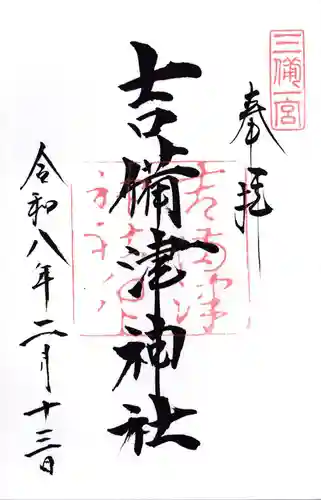 三備一宮
奉拝
吉備津神社
令和八年二月十三日